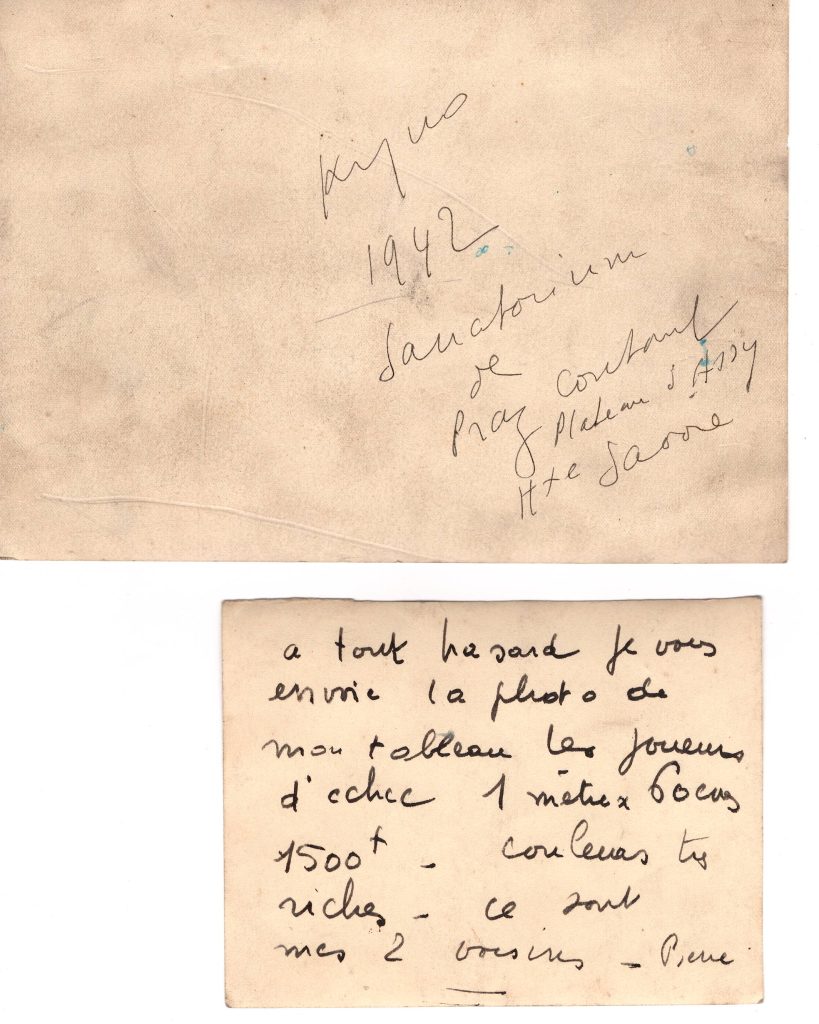 1942
Sanatorium
de
Praz Coutant
Plateau d'Assy
Hte Savoie
a tout hasard je vous
envoie la photo de
mon tableau les joueurs
d'echec 1 mètre x 60 cms
1500f - couleurs très
riches - ce sont
mes 2 voisins - Pierre